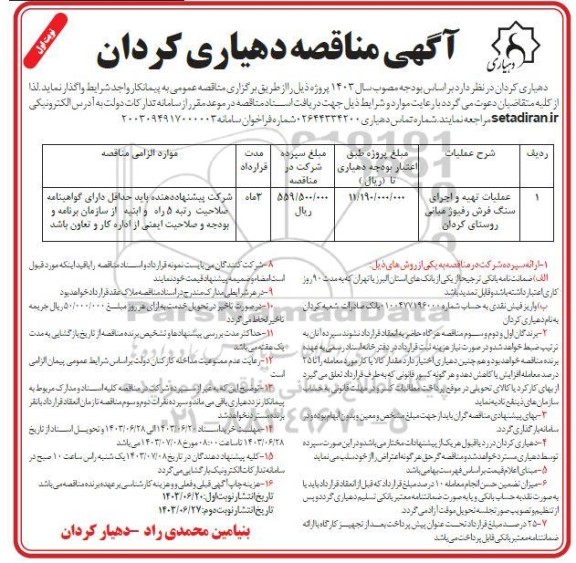 نوبت اول
آگهی مناقصه دهیاری کردان
دهیاری
دهیاری کردان در نظر دارد بر اساس بودجه مصوب سال ۱۴۰۳ پروژه ذیل را از طریق برگزاری مناقصه عمومی به پیمانکار واجد شرایط واگذار نماید. لذا
از کلیه متقاضیان دعوت می گردد با رعایت موارد و شرایط ذیل جهت دریافت اسناد مناقصه در موعد مقرر از سامانه تدارکات دولت به آدرس الکترونیکی
setadiran.ir مراجعه نمایند. شماره تماس دهیاری ۰۲۶۴۴۳۳۴۲۰۰ شماره فراخوان سامانه ۲۰۰۳۰۹۴۹۱۷۰۰۰۰۰۳
ردیف
شرح عملیات
مبلغ پروژه طبق
اعتبار بودجه دهیاری
تا (ریال)
مبلغ سپرده
شرکت در
مناقصه
مدت
قرارداد
موارد الزامی مناقصه
۱
عملیات تهیه و اجرای
سنگ فرش رفیوژ میانی
روستای کردان
۱۱/۱۹۰/۰۰۰/۰۰۰
۵۵۹/۵۰۰/۰۰۰
ریال
۳ماه
شرکت پیشنهاددهنده باید حداقل دارای گواهینامه
صلاحیت رتبه ۵ راه و ابنیه از سازمان برنامه و
بودجه و صلاحیت ایمنی از اداره کار و تعاون باشد
۱-ارائه سپرده شرکت در مناقصه به یکی از روش های ذیل:
الف) ضمانت نامه بانکی ترجیحا از یکی از بانک های استان البرز یا تهران که به مدت ۹۰ روز
کاری اعتبار داشته باشد و قابل تمدید باشد
ب) واریز فیش نقدی به حساب شماره ۰۱۰۰۴۷۷۱۹۶۰۰۰ بانک صادرات شعبه کردان
به نام دهیاری کردان
۲-برندگان اول و دوم و سوم مناقصه هرگاه حاضر به انعقاد قرارداد نشوند سپرده آنان به
ترتیب ضبط خواهد شد در صورت نیاز هزینه ثبت قرارداد در دفترخانه اسناد رسمی به عهده
برنده مناقصه خواهد بود و همچنین دهیاری اختیار دارد مقدار کالا یا کار مورد معامله را تا ۲۵
درصد معامله افزایش یا کاهش دهد و هرگونه کسور قانونی که به طرف قرارداد تعلق می گیرد
۳-بهای پیشنهادی مناقصه گران باید از جهت مبلغ مشخص و معین و بدون ابهام بوده و در
سامانه بارگذاری گردد.
۴-دهیاری کردان در رد یا قبول هریک از پیشنهادات مختار می باشد و در این صورت سپرده
توسط دهیاری مسترد خواهد شد و مناقصه گر حق هرگونه اعتراض را از خود سلب می نماید
۵-مبنای اعلام قیمت بر اساس فهرست بهای می باشد
۶-میزان تضمین حسن انجام معامله ۱۰ درصد مبلغ قرارداد که قبل از انعقاد قرارداد باید یا
به صورت نقد به حساب بانکی و یا به صورت ضمانتنامه معتبر بانکی تسلیم دهیاری گردد و پس
از تنظیم و تصویب صورتجلسه تحویل موقت آزاد می گردد.
۷-۲۵ درصد مبلغ قرارداد تحت عنوان پیش پرداخت بعد از تجهیز کارگاه با ارائه
ضمانتنامه معتبر بانکی قابل پرداخت می باشد
۸-شرکت کنندگان می بایست نمونه قرارداد و اسناد مناقصه را با قید اینکه مورد قبول
است امضا و ضمیمه پیشنهاد قیمت خود نمایند
۹-در هر شرایطی مدارک مندرج در اسناد مناقصه ملاک عقد قرارداد خواهد بود
۱۰-در صورت تاخیر در تحویل خدمت به ازای هر روز مبلغ ۵۰/۰۰۰/۰۰۰ ریال جریمه
تاخیر لحاظ می گردد
۱۱-حداکثر مدت بررسی پیشنهادها و تشخیص برنده مناقصه از تاریخ بازگشایی به مدت
یک هفته می باشد
۱۲-رعایت عدم ممنوعیت مداخله کارکنان دولت بر اساس شرایط عمومی پیمان الزامی
است
۱۳-توضیح این که به غیر از سپرده شرکت در مناقصه کلیه اسناد و مدارک مربوط به
پیمانکار نزد دهیاری باقی می ماند و سپرده نفرات دوم و سوم مناقصه تا زمان انعقاد قرارداد با نفر
برنده مسترد نخواهد شد
۱۴-مهلت خرید اسناد ۱۴۰۳/۰۶/۲۰ الی ۱۴۰۳/۰۶/۲۸ و تحویل اسناد از تاریخ
۱۴۰۳/۰۶/۲۸ تا ساعت ۰۸:۰۰ مورخ ۱۴۰۳/۰۷/۰۸ می باشد
۱۵-کلیه پیشنهاد دهندگان در تاریخ ۱۴۰۳/۰۷/۰۸ یک شنبه راس ساعت ۱۰ صبح در
سامانه تدارکات الکترونیک بازگشایی می گردد
۱۶-هزینه چاپ آگهی قبلی و فعلی و هزینه کارشناسی بر عهده برنده مناقصه می باشد
تاریخ انتشار نوبت اول: ۱۴۰۳/۰۶/۲۰
تاریخ انتشار نوبت دوم: ۱۴۰۳/۰۶/۲۷
بنیامین محمدی راد -دهیار کردان